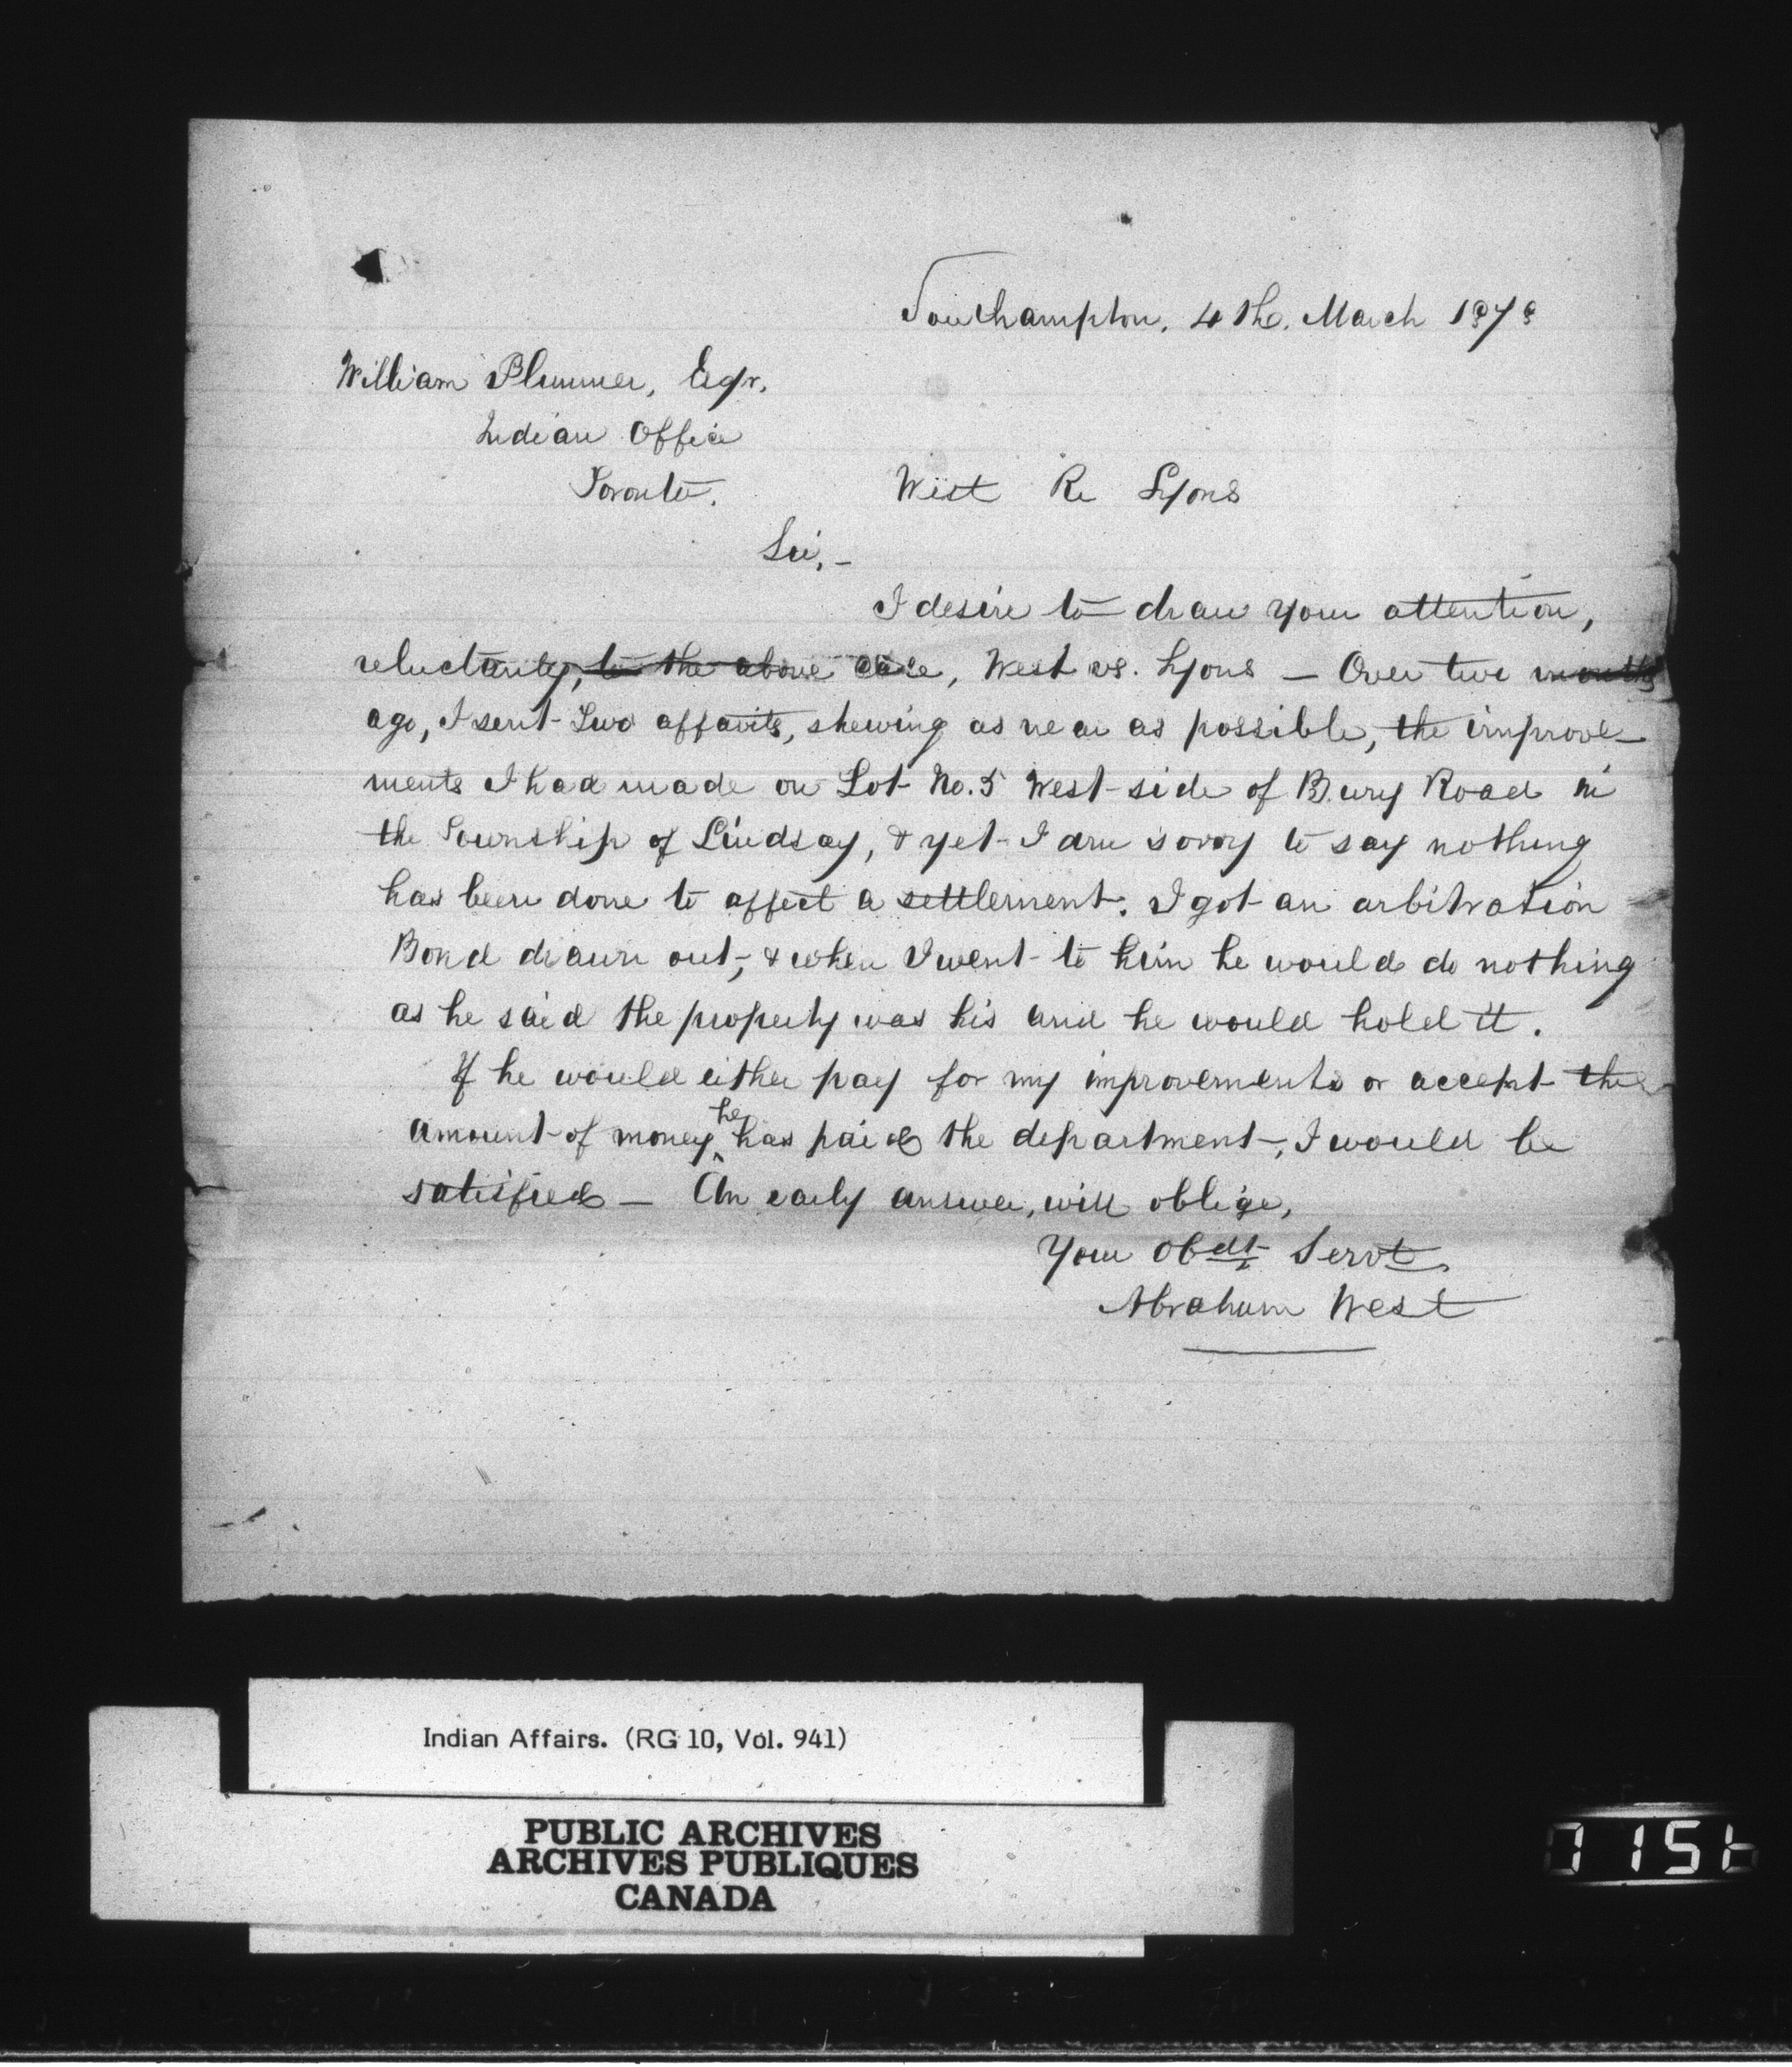 Southampton, 4th. March 1878
William Plummer, Esqr.
Indian Office
Toronto.
West Re Lyons
Sir,-
I desire to draw your attention,
reluctantly, to the above case, West vs. Lyons — Over two months
ago, I sent two affavits, shewing as near as possible, the improve-
ments I had made on Lot No. 5 West side of Bury Road in
the Township of Lindsay, & yet I am sorry to say nothing
has been done to affect a settlement. I got an arbitration
Bond drawn out, & when I went to him he would do nothing
as he said the property was his and he would hold it.
If he would either pay for my improvements or accept the
amount of money he has paid the department, I would be
satisfied — An early answer, will oblige,
Your Obdt Servt.
Abraham West
Indian Affairs. (RG 10, Vol. 941)
PUBLIC ARCHIVES
ARCHIVES PUBLIQUES
CANADA